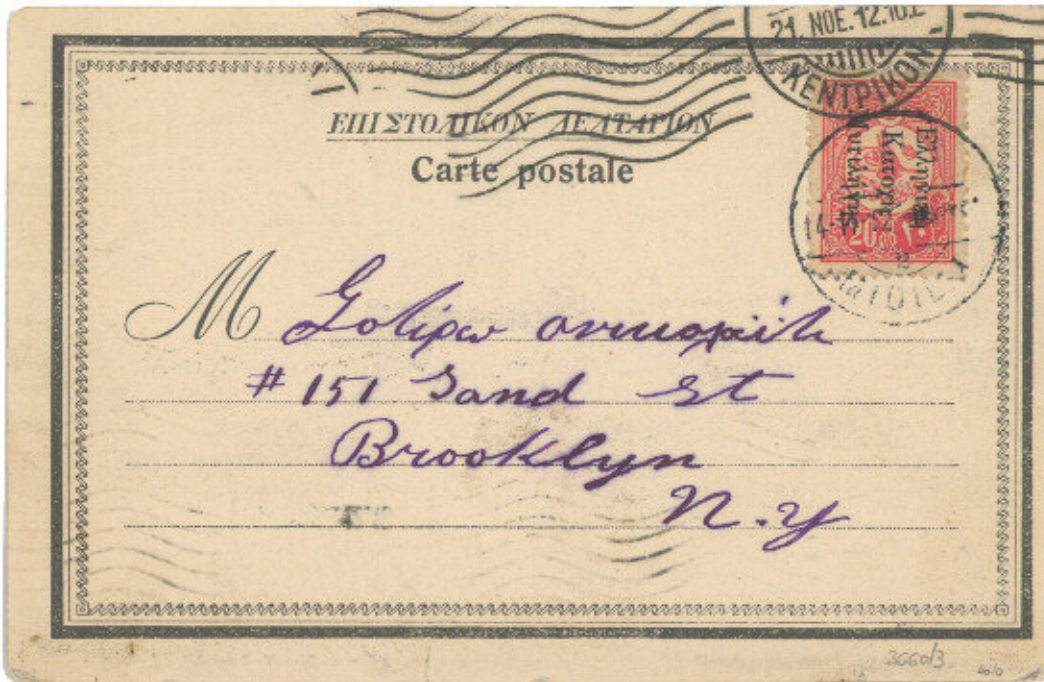 21. ΝΟΕ. 12.10
ΚΕΝΤΡΙΚΟΝ
ΕΠΙΣΤΟΛΙΚΟΝ ΔΕΛΤΑΡΙΟΝ
Carte postale
Ἑλληνικὴ
Κατοχὴ
Μυτιλήνης
20
14-
M
# 151 Sand St
Brooklyn
N.Y
3660/3